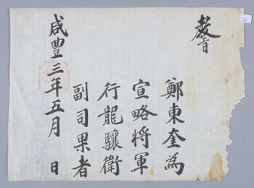 教旨
鄭東奎為
宣略將軍
行龍驤衛
副司果者
咸豐三年五月　日